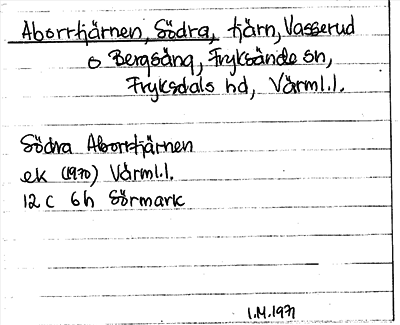 Aborrtjärnen, Södra, tjärn, Vasserud
o Bergsäng, Fryksände sn,
Fryksdals hd, Värml.l.
Södra Aborrtjärnen
ek (1970) Värml.l.
12 C 6h Sörmark
1.M.1971